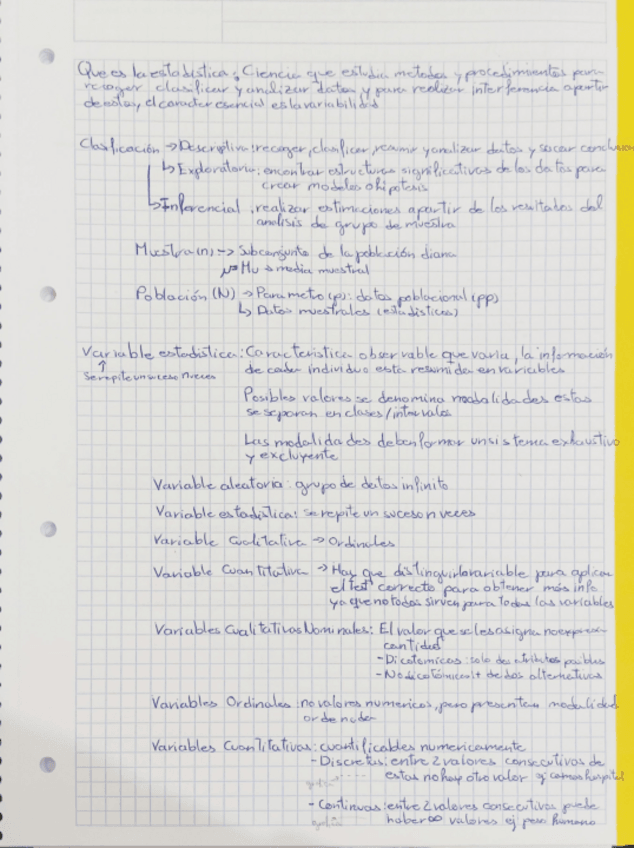 Que es la estadística: Ciencia que estudia metodos y procedimientos para
recoger clasificar y analizar datos y para realizar interferencia apartir
de estos, el caracter esencial es la variabilidad
Clasficación → Descriptiva: recoger, clasificar, resumir y analizar datos y sacar conclusion
↳ Exploratoria: encontrar estructuras significativas de los datos para
crear modelos o hipotesis
↳ Inferencial, realizar estimaciones apartir de los resultados del
analisis de grupo de muestra
Muestra (n) → Subconjunto de la población diana
μ= Mu → media muestral
Población (N) → Parametro (p): datos poblacional (pp)
↳ Datos muestrales (estadisticos)
Variable estadística: Caracteristica observable que varia, la información
↑
Se repite un suceso n veces
de cada individuo esta resumida en variables
Posibles valores se denomina modalidades estas
se separan en clases/intervalos
Las modalidades deben formar un sistema exhaustivo
y excluyente
Variable aleatoria: grupo de datos infinito
Variable estadística: se repite un suceso n veces
Variable Cualitativa → Ordinales
Variable Cuantitativa → Hay que distinguir la variable para aplicar
el test correcto para obtener más info
ya que no todas sirven para todas las variables
Variables Cualitativas Nominales: El valor que se les asigna no expresan
cantidad
- Dicotomicas: solo dos atributos posibles
- No dicotómicas: + de dos alternativas
Variables Ordinales: no valores numericos, pero presentan modalidad
ordenada
Variables Cuantitativas: cuantificables numericamente
- Discretas: entre 2 valores consecutivos de
estas no hay otro valor ej camas hospital
- Continuas: entre 2 valores consecutivos puede
haber ∞ valores ej peso humano